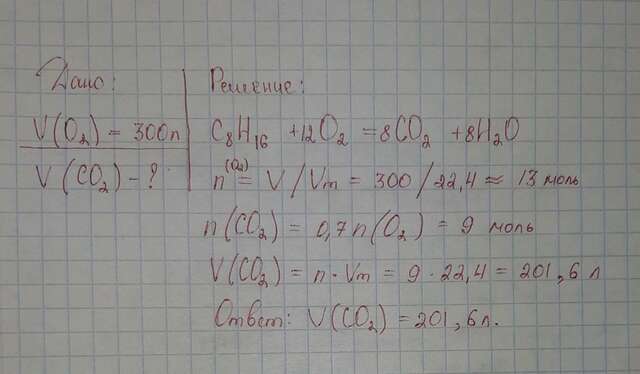 Дано:
V(O₂) = 300л
V(CO₂) - ?
Решение:
C₈H₁₆ + 12O₂ = 8CO₂ + 8H₂O
n(O₂) = V/Vm = 300/22,4 ≈ 13 моль
n(CO₂) = 0,7n(O₂) = 9 моль
V(CO₂) = n · Vm = 9 · 22,4 = 201,6 л
Ответ: V(CO₂) = 201,6л.